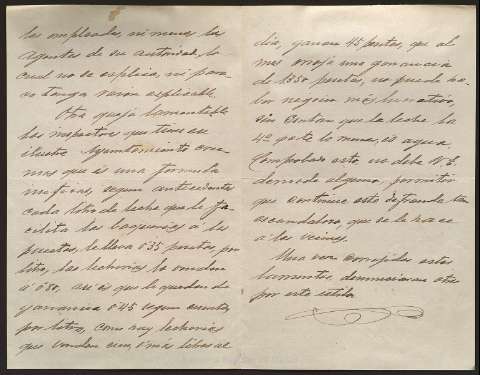 los empleados, ni menos los
agentes de su autoridad, lo
cual no se explica, ni para
eso tenga razon esplicable.
Otra queja lamentable
los inspectores que tiene ese
ilustre Ayuntamiento
mas que es una formula
segun antecedentes
cada litro de leche que le fa-
cilita las baquerias a los
puestos, le lleva 0'35 pesetas, por
litro, las lecherias lo venden
a 0'80. asi es que le quedan de
ganancia 0'45 segun cuenta,
por litro, como hay lecherias
que venden cien, ó más litros al
dia, ganan 45 pesetas, que al
mes arroja una ganancia
de 1350 pesetas, no puede ha-
ber negocio más lucrativo,
sin contar que la leche la
4ª parte lo menos, es agua.
Comprobado esto, no debe V. E.
de modo alguno permitir
que continue esta defrauda tan
escandalosa, que se le hace
a los vecinos.
Una vez corregidos estos
lamentos, denunciaremos otros
por este estilo.